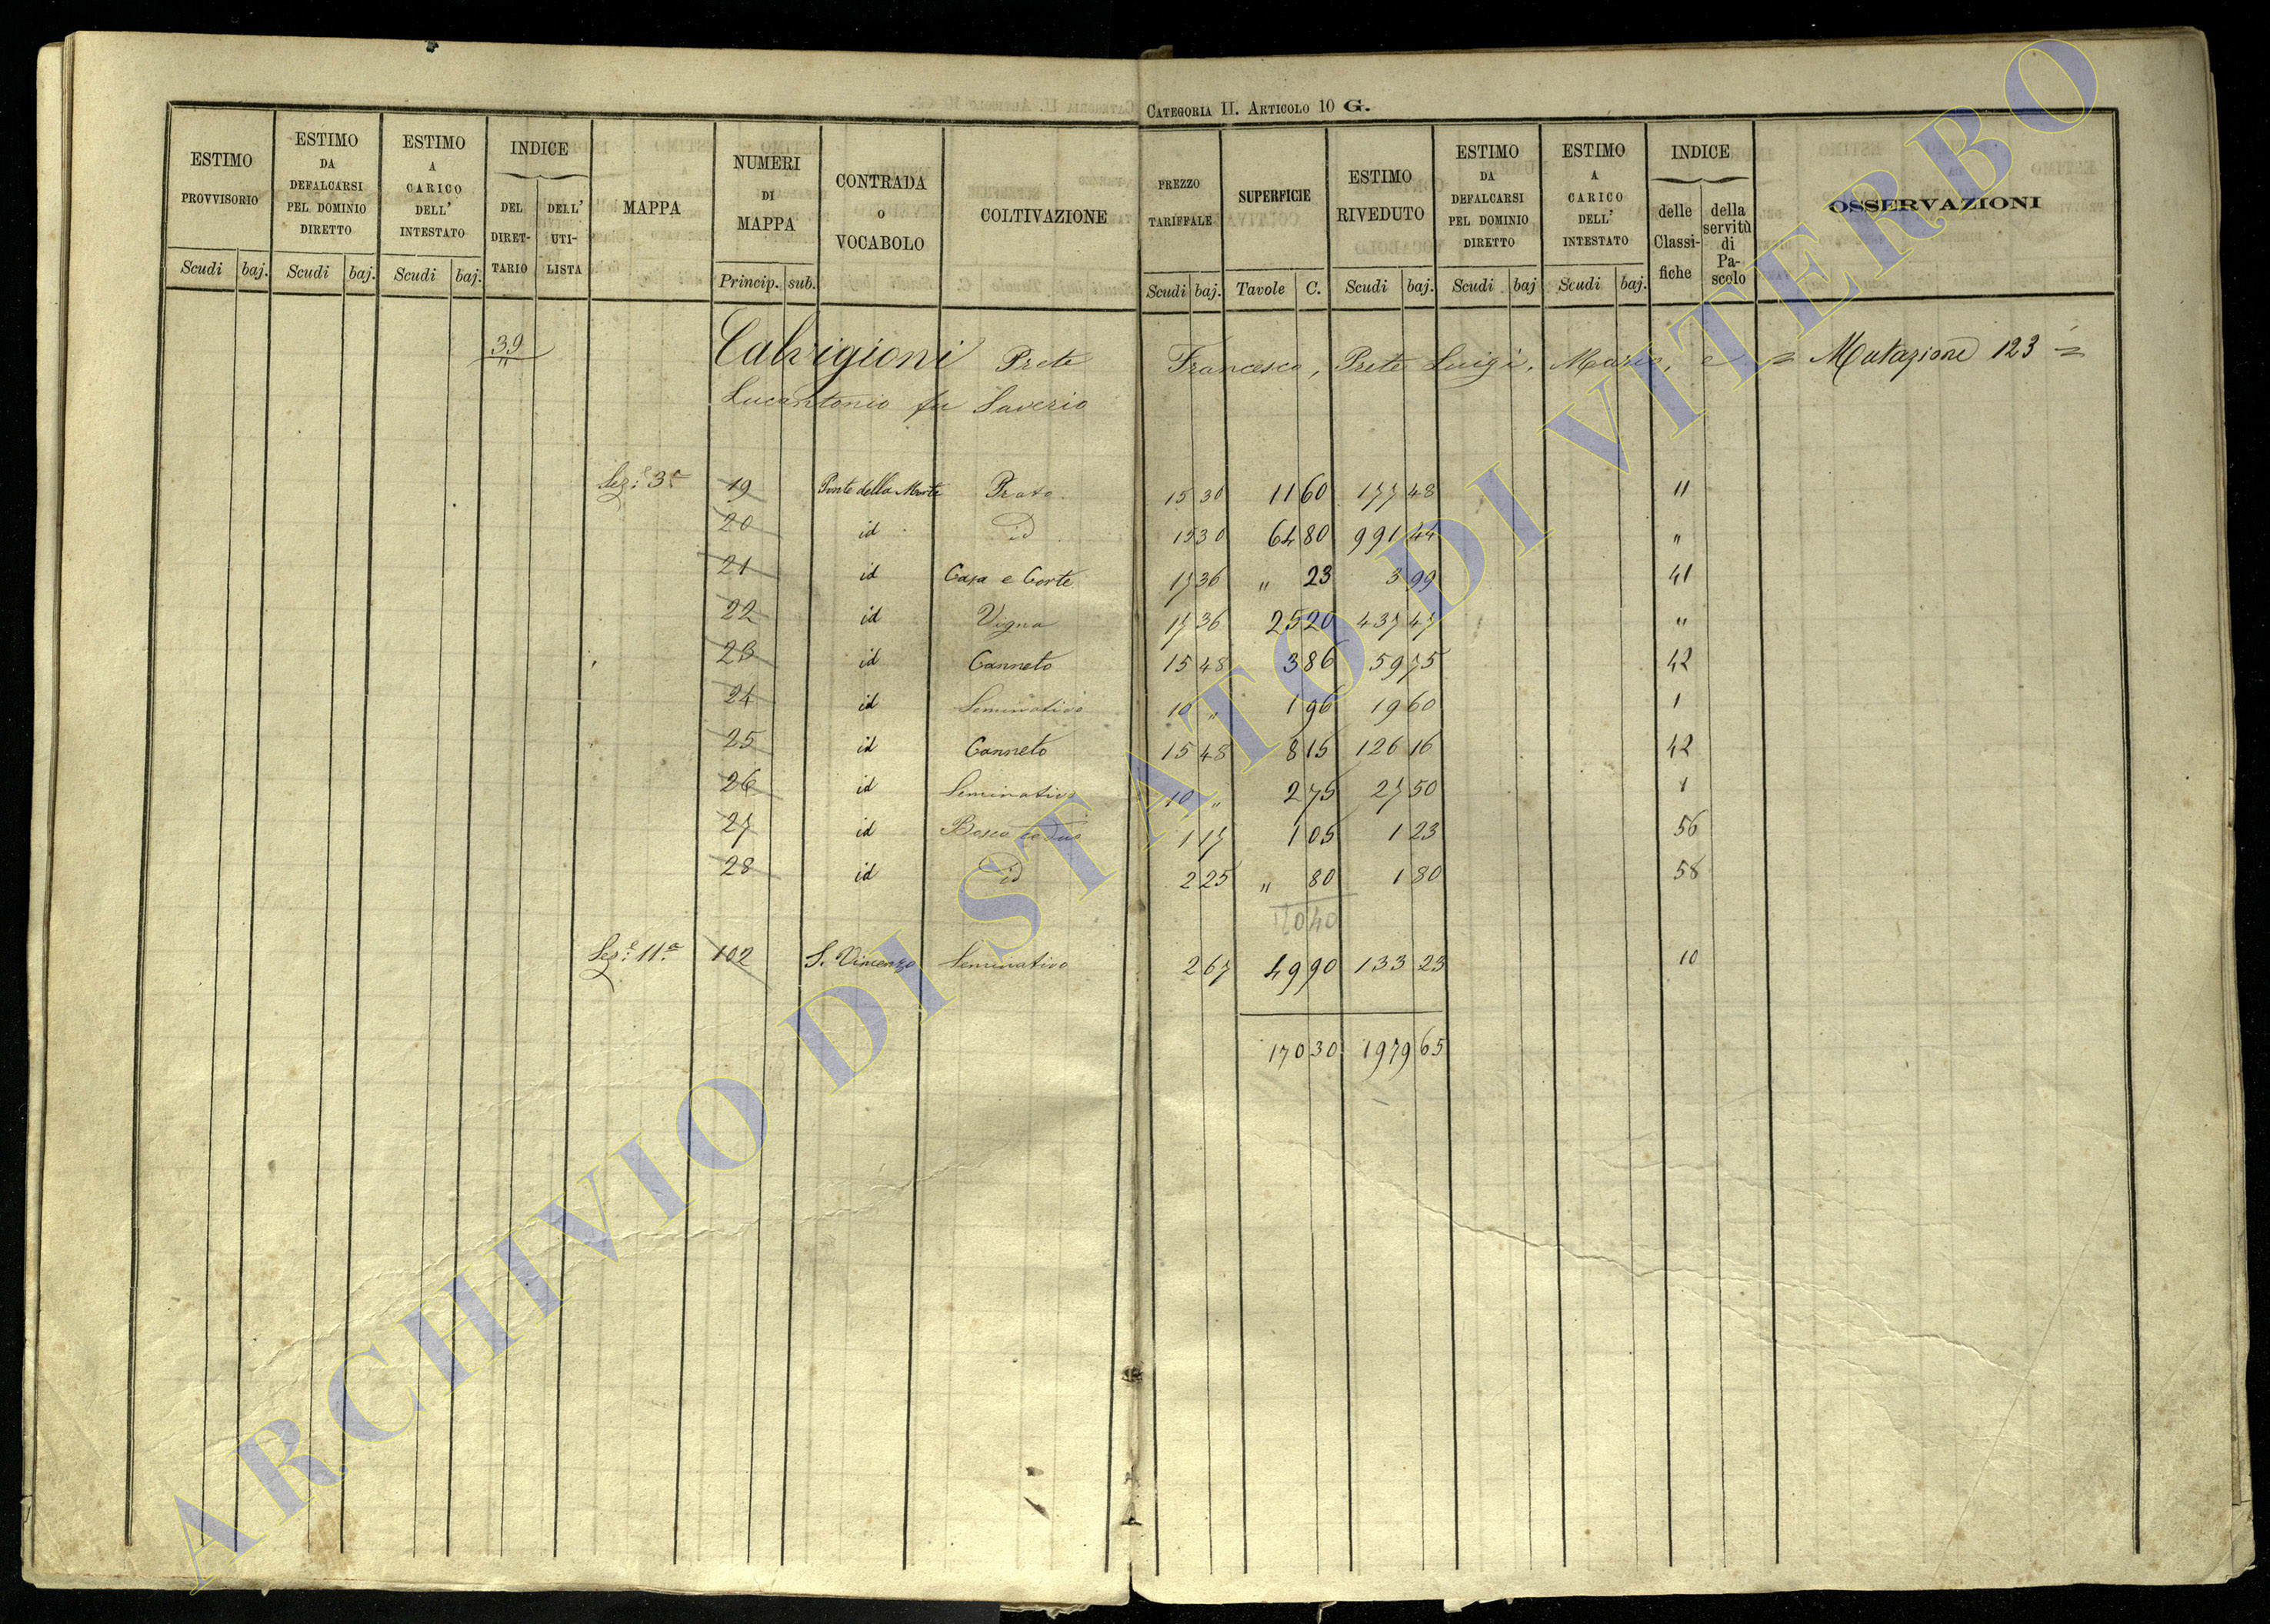 CATEGORIA II. ARTICOLO 10 G.
ESTIMO PROVVISORIO Scudi baj.
ESTIMO DA DEFALCARSI PEL DOMINIO DIRETTO Scudi baj.
ESTIMO A CARICO DELL' INTESTATO Scudi baj.
INDICE DEL DIRET-TARIO DELL' UTI-LISTA
MAPPA
NUMERI DI MAPPA Princip. sub.
CONTRADA O VOCABOLO
COLTIVAZIONE
PREZZO TARIFFALE Scudi baj.
SUPERFICIE Tavole C.
ESTIMO RIVEDUTO Scudi baj.
ESTIMO DA DEFALCARSI PEL DOMINIO DIRETTO Scudi baj
ESTIMO A CARICO DELL' INTESTATO Scudi baj.
INDICE delle Classi-fiche della servitù di Pa-scolo
OSSERVAZIONI
39 Calvigioni Prete Francesco, Prete Luigi, Mario, e = Mutazione 123 =
Lucantonio fu Saverio
Sez.e 3a 19 Ponte della Morte Prato 15 30 11 60 177 48 11
20 id id 15 30 64 80 991 44 "
21 id Casa e Corte 17 36 " 23 3 99 41
22 id Vigna 17 36 25 20 437 47 "
23 id Canneto 15 48 3 86 59 75 42
24 id Seminativo 10 " 1 96 19 60 1
25 id Canneto 15 48 8 15 126 16 42
26 id Seminativo 10 " 2 75 27 50 1
27 id Bosco ceduo 1 17 1 05 1 23 56
28 id id 2 25 " 80 1 80 58
120 40
Sez.e 11a 102 S. Vincenzo Seminativo 2 67 49 90 133 23 10
170 30 1979 65
ARCHIVIO DI STATO DI VITERBO